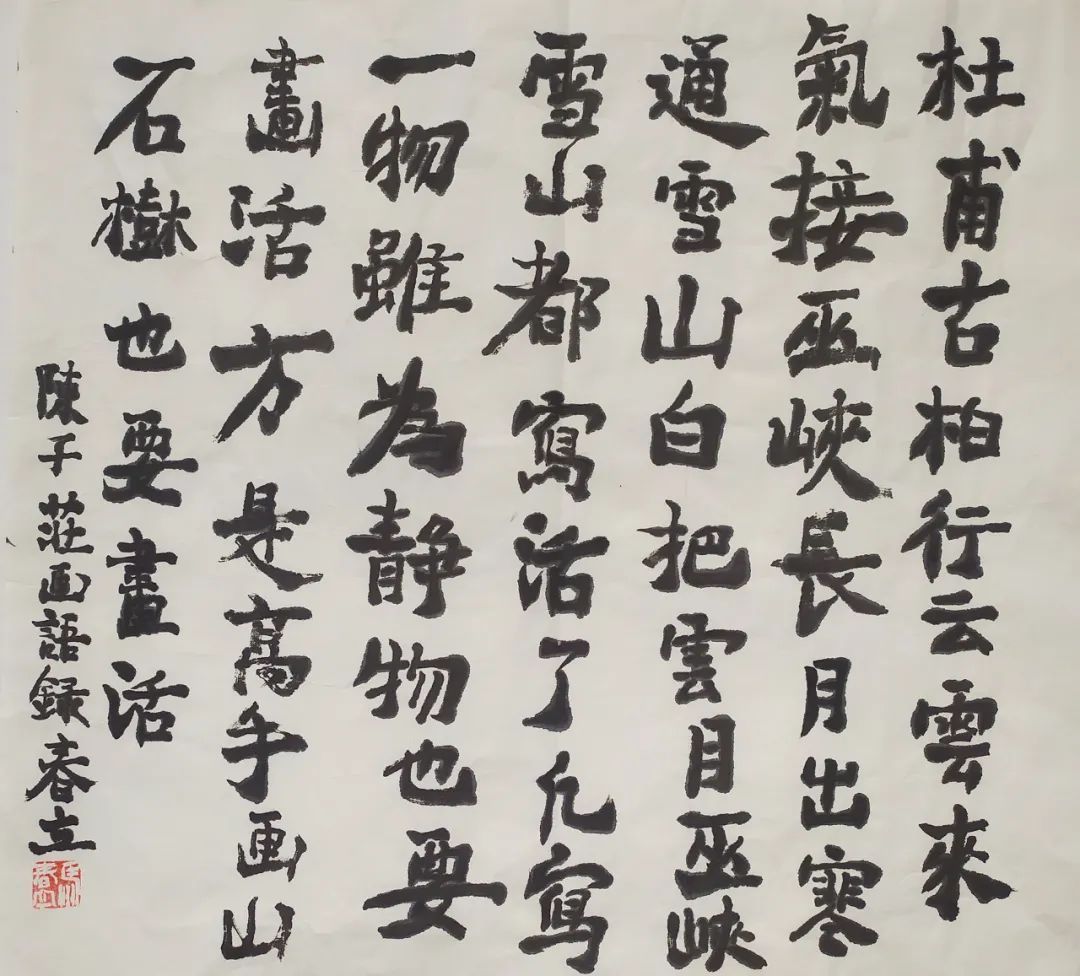 杜甫古柏行云雲來
氣接巫峽長月出寒
通雪山白把雲月巫峽
雪山都寫活了凡寫
一物雖為靜物也要
畫活方是高手画山
石樹也要畫活
陳子莊画語録春立